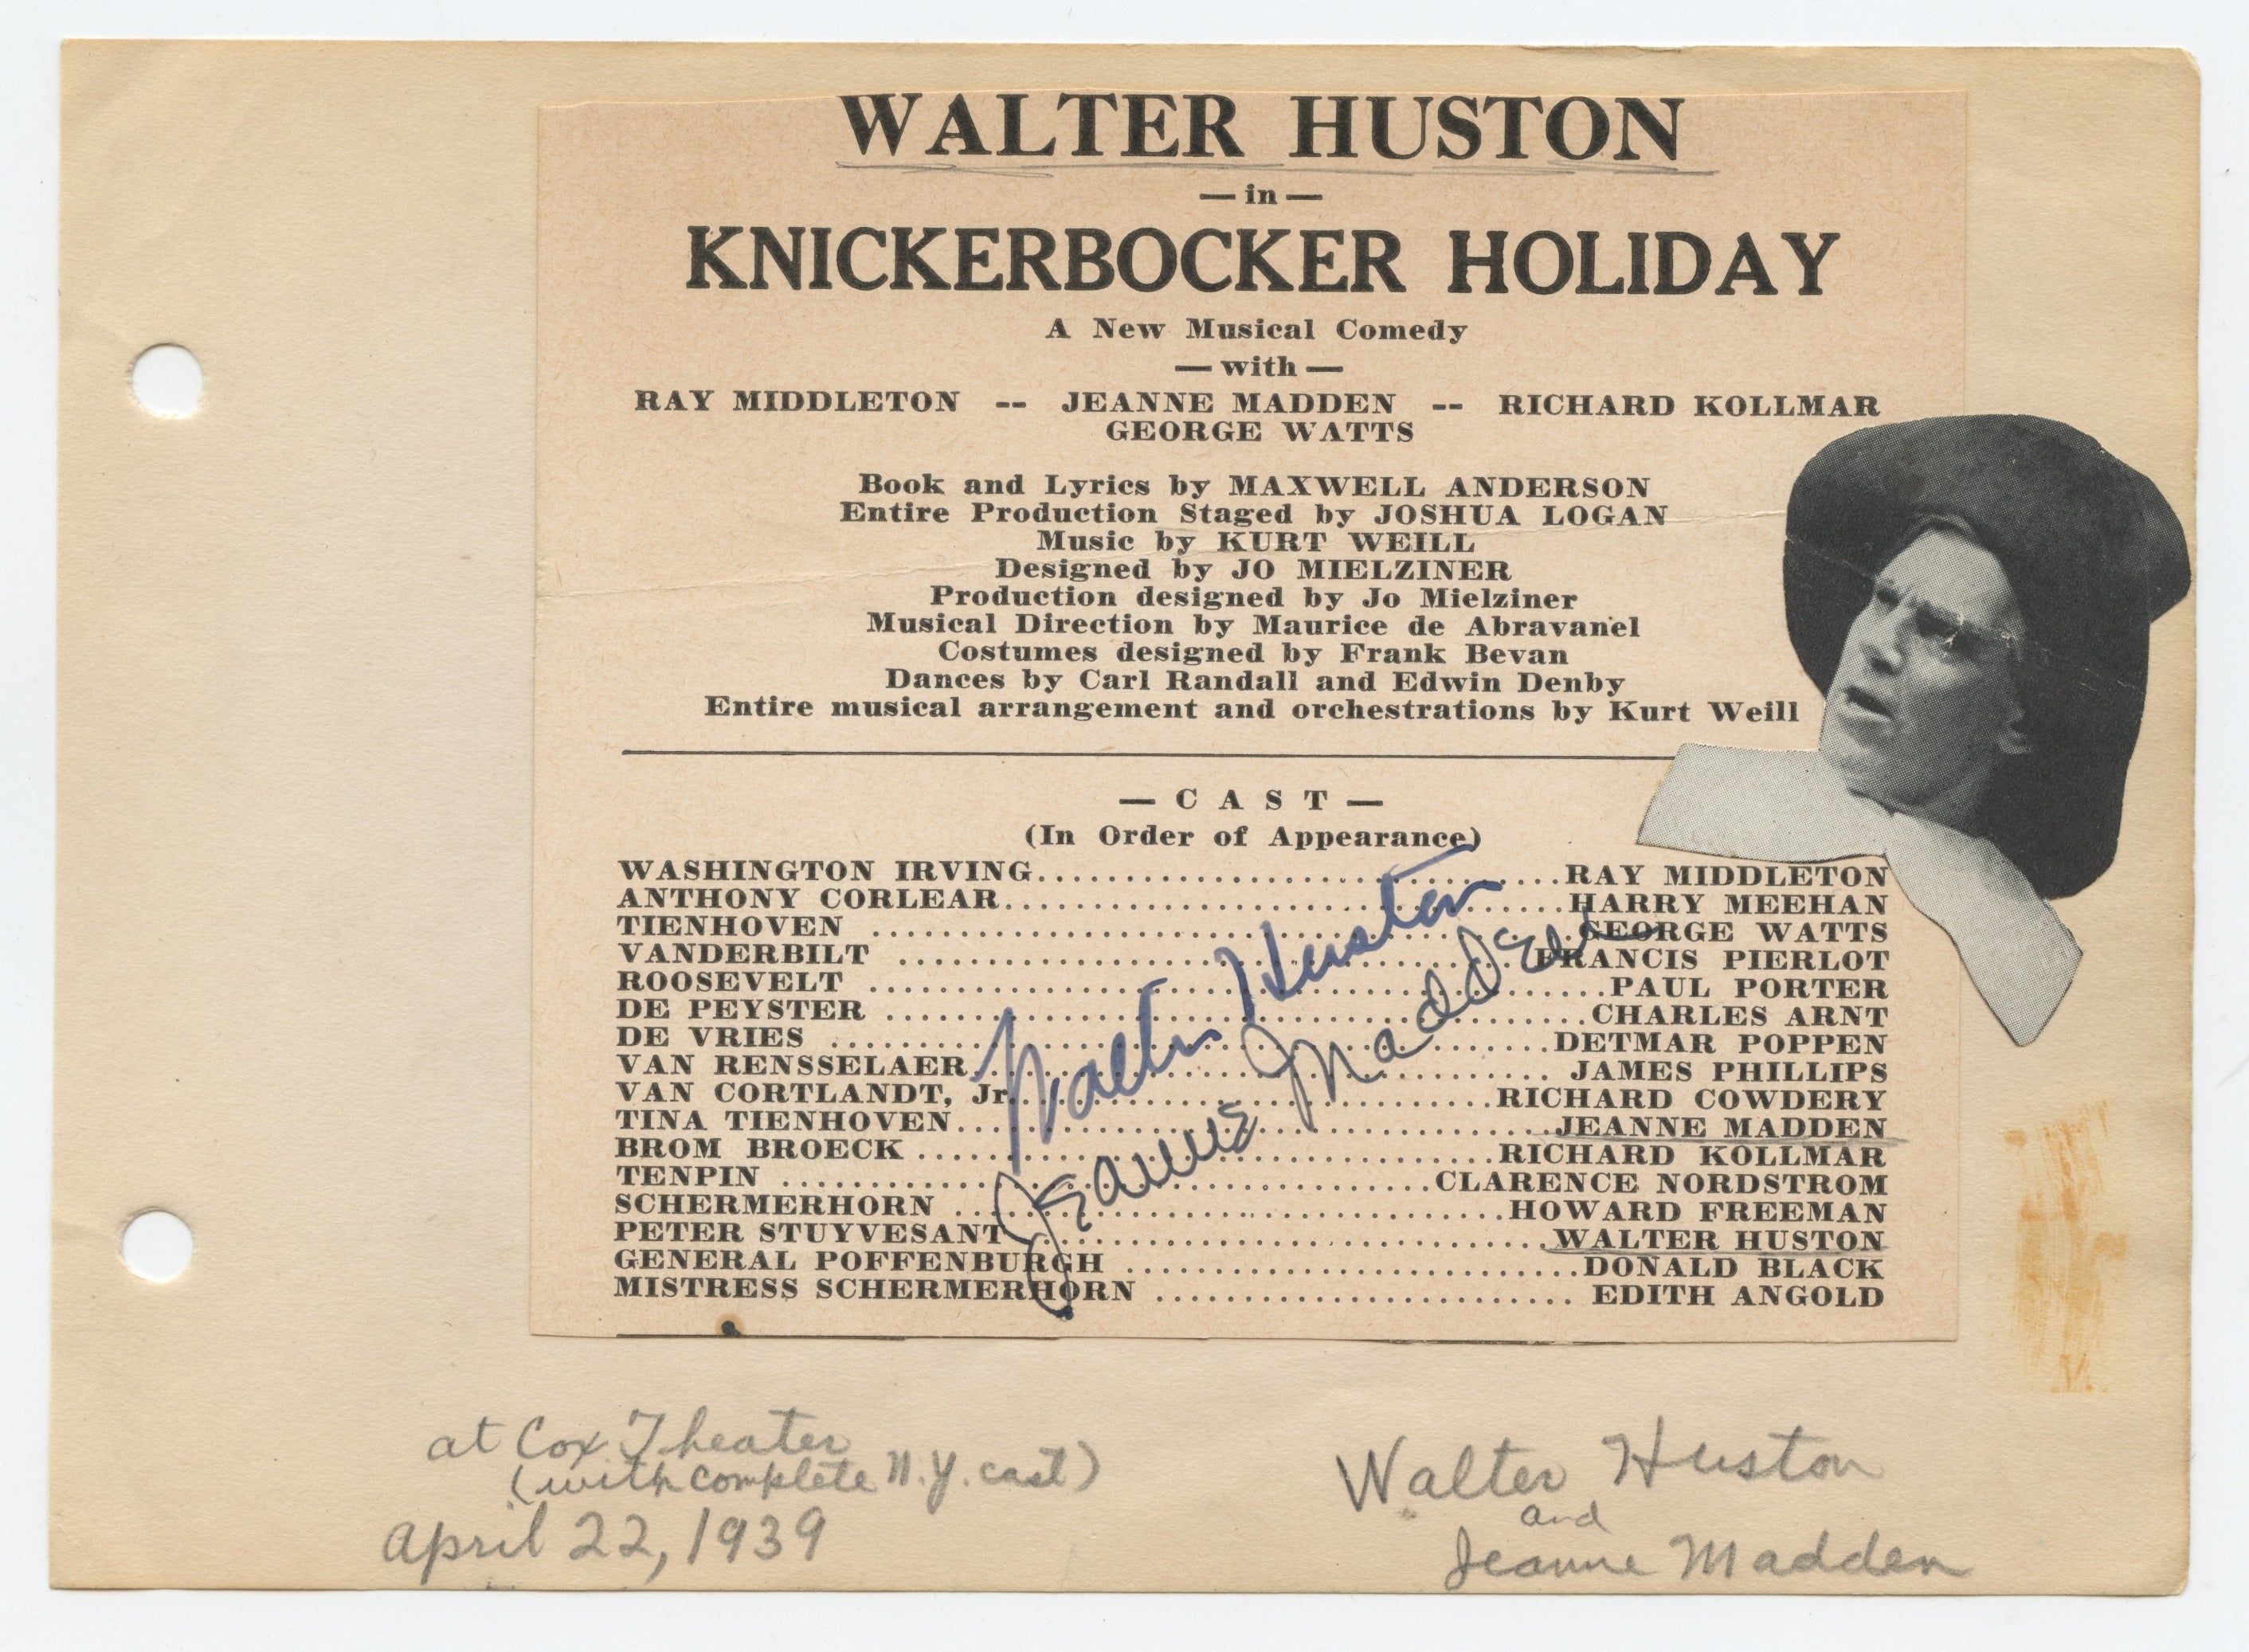 WALTER HUSTON
— in —
KNICKERBOCKER HOLIDAY
A New Musical Comedy
— with —
RAY MIDDLETON -- JEANNE MADDEN -- RICHARD KOLLMAR
GEORGE WATTS
Book and Lyrics by MAXWELL ANDERSON
Entire Production Staged by JOSHUA LOGAN
Music by KURT WEILL
Designed by JO MIELZINER
Production designed by Jo Mielziner
Musical Direction by Maurice de Abravanel
Costumes designed by Frank Bevan
Dances by Carl Randall and Edwin Denby
Entire musical arrangement and orchestrations by Kurt Weill
— C A S T —
(In Order of Appearance)
WASHINGTON IRVING..............................RAY MIDDLETON
ANTHONY CORLEAR..............................HARRY MEEHAN
TIENHOVEN ..............................GEORGE WATTS
VANDERBILT ..............................FRANCIS PIERLOT
ROOSEVELT ..............................PAUL PORTER
DE PEYSTER ..............................CHARLES ARNT
DE VRIES ..............................DETMAR POPPEN
VAN RENSSELAER.............................. JAMES PHILLIPS
VAN CORTLANDT, Jr..............................RICHARD COWDERY
TINA TIENHOVEN..............................JEANNE MADDEN
BROM BROECK ..............................RICHARD KOLLMAR
TENPIN ..............................CLARENCE NORDSTROM
SCHERMERHORN ..............................HOWARD FREEMAN
PETER STUYVESANT..............................WALTER HUSTON
GENERAL POFFENBURGH ..............................DONALD BLACK
MISTRESS SCHERMERHORN .............................. EDITH ANGOLD
Walter Huston
Jeanne Madden
at Cox Theater
(with complete N.Y. cast)
April 22, 1939
Walter Huston
and
Jeanne Madden